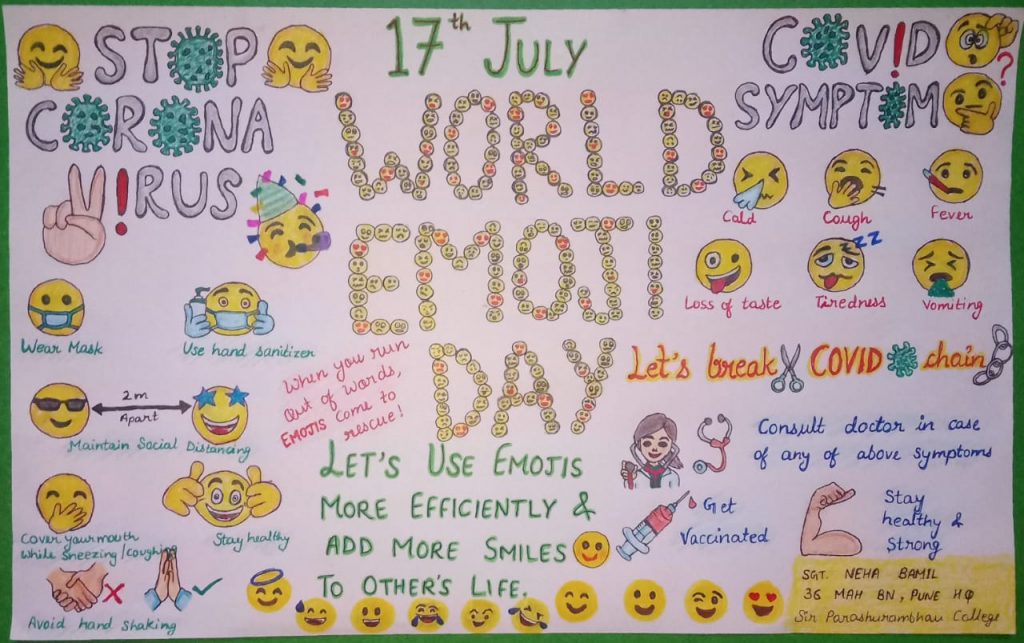 STOP
CORONA
V!RUS
Wear Mask
Use hand sanitizer
2m
Apart
Maintain Social Distancing
Cover your mouth
while sneezing/coughing
Stay healthy
Avoid hand shaking
17th JULY
WORLD
EMOJI
DAY
When you run
Out of words,
EMOJIS come to
rescue!
LET'S USE EMOJIS
MORE EFFICIENTLY &
ADD MORE SMILES
TO OTHER'S LIFE.
COV!D
SYMPTOM
?
Cold
Cough
Fever
ZZZ
Loss of taste
Tiredness
Vomiting
Let's break COVID chain
Consult doctor in case
of any of above symptoms
Get
Vaccinated
Stay
healthy &
Strong
SGT. NEHA BAMIL
36 MAH BN, PUNE HQ
Sir Parashurambhau College